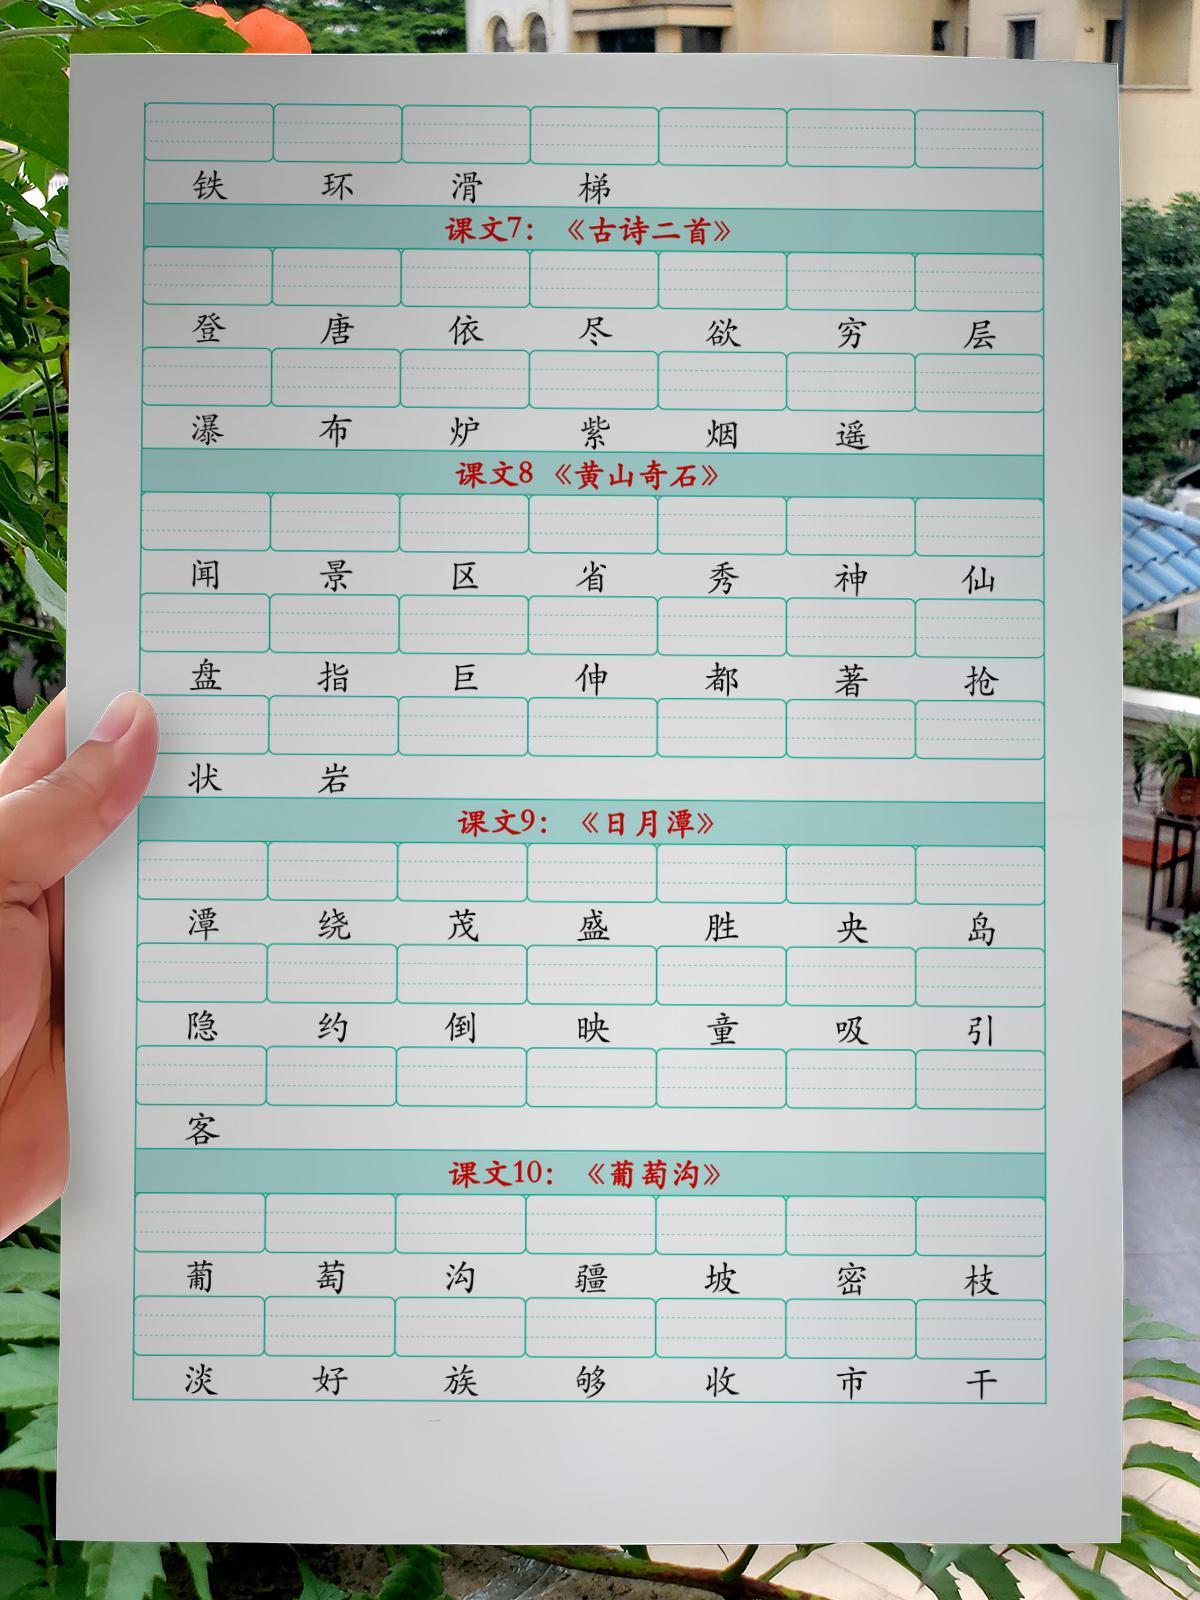 铁 环 滑 梯
课文7：《古诗二首》
登 唐 依 尽 欲 穷 层
瀑 布 炉 紫 烟 遥
课文8《黄山奇石》
闻 景 区 省 秀 神 仙
盘 指 巨 伸 都 著 抢
状 岩
课文9：《日月潭》
潭 绕 茂 盛 胜 央 岛
隐 约 倒 映 童 吸 引
客
课文10：《葡萄沟》
葡 萄 沟 疆 坡 密 枝
淡 好 族 够 收 市 干